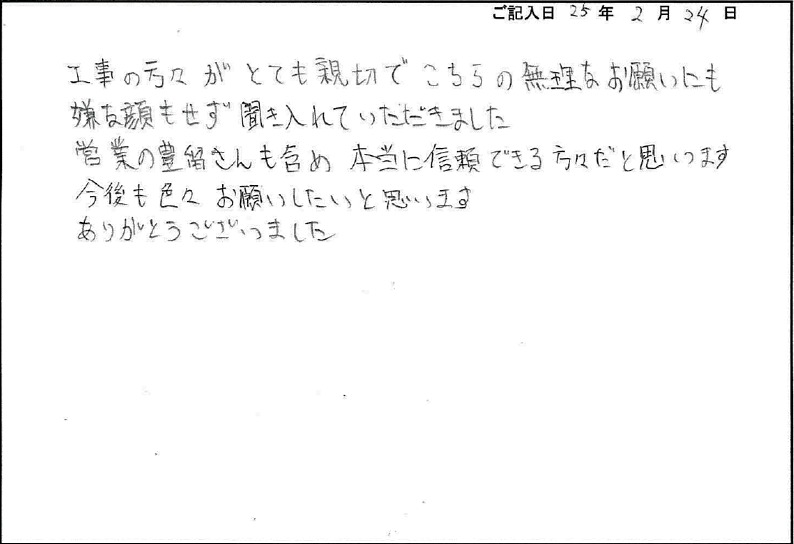 ご記入日 25 年 2 月 24 日
工事の方々がとても親切でこちらの無理なお願いにも
嫌な顔もせず聞き入れていただきました
営業の豊留さんも含め本当に信頼できる方々だと思います
今後も色々お願いしたいと思います
ありがとうございました